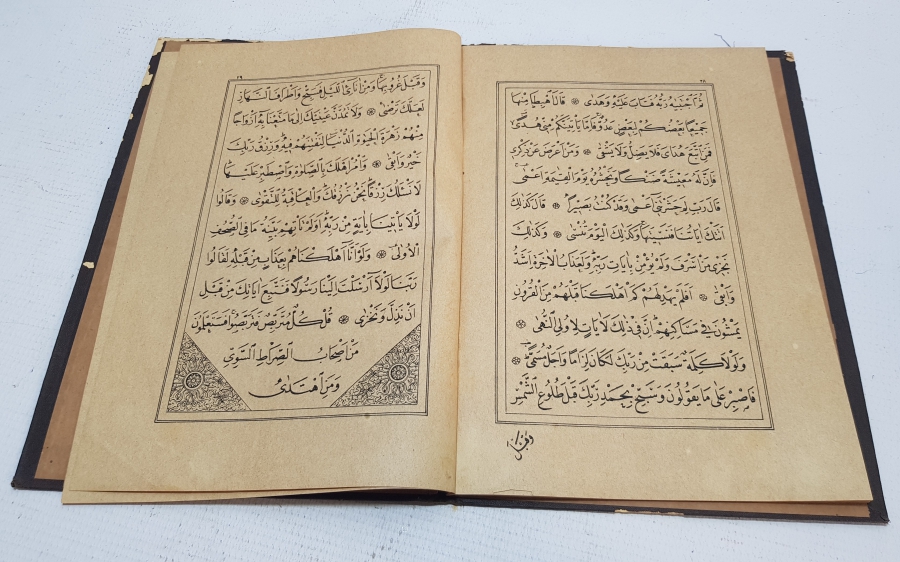 ثُمَّ اجْتَبٰيهُ رَبُّهُ فَتَابَ عَلَيْهِ وَهَدٰى ۞ قَالَ اهْبِطَا مِنْهَا
جَمِيعًا بَعْضُكُمْ لِبَعْضٍ عَدُوٌّ فَاِمَّا يَأْتِيَنَّكُمْ مِنّى هُدًى
فَمَنِ اتَّبَعَ هُدَاىَ فَلَا يَضِلُّ وَلَا يَشْقٰى ۞ وَمَنْ اَعْرَضَ عَنْ ذِكْرى
فَاِنَّ لَهُ مَعيشَةً ضَنْكًا وَنَحْشُرُهُ يَوْمَ الْقِيٰمَةِ اَعْمٰى
قَالَ رَبِّ لِمَ حَشَرْتَنى اَعْمٰى وَقَدْ كُنْتُ بَصيرًا ۞ قَالَ كَذٰلِكَ
اَتَتْكَ اٰيَاتُنَا فَنَسيتَهَا وَكَذٰلِكَ الْيَوْمَ تُنْسٰى ۞ وَكَذٰلِكَ
نَجْزى مَنْ اَسْرَفَ وَلَمْ يُؤْمِنْ بِاٰيَاتِ رَبِّهِ وَلَعَذَابُ الْاٰخِرَةِ اَشَدُّ
وَاَبْقٰى ۞ اَفَلَمْ يَهْدِ لَهُمْ كَمْ اَهْلَكْنَا قَبْلَهُمْ مِنَ الْقُرُونِ
يَمْشُونَ فى مَسَاكِنِهِمْ اِنَّ فى ذٰلِكَ لَاٰيَاتٍ لِاُولِى النُّهٰى ۞
وَلَوْلَا كَلِمَةٌ سَبَقَتْ مِنْ رَبِّكَ لَكَانَ لِزَامًا وَاَجَلٌ مُسَمًّى ۞
فَاصْبِرْ عَلٰى مَا يَقُولُونَ وَسَبِّحْ بِحَمْدِ رَبِّكَ قَبْلَ طُلُوعِ الشَّمْسِ
وَقَبْلَ
وَقَبْلَ غُرُوبِهَا وَمِنْ اٰنَائِ الَّيْلِ فَسَبِّحْ وَاَطْرَافَ النَّهَارِ
لَعَلَّكَ تَرْضٰى ۞ وَلَا تَمُدَّنَّ عَيْنَيْكَ اِلٰى مَا مَتَّعْنَا بِهِ اَزْوَاجًا
مِنْهُمْ زَهْرَةَ الْحَيٰوةِ الدُّنْيَا لِنَفْتِنَهُمْ فيهِ وَرِزْقُ رَبِّكَ
خَيْرٌ وَاَبْقٰى ۞ وَأْمُرْ اَهْلَكَ بِالصَّلٰوةِ وَاصْطَبِرْ عَلَيْهَا
لَا نَسْئَلُكَ رِزْقًا نَحْنُ نَرْزُقُكَ وَالْعَاقِبَةُ لِلتَّقْوٰى ۞ وَقَالُوا
لَوْلَا يَأْتينَا بِاٰيَةٍ مِنْ رَبِّهِ اَوَلَمْ تَأْتِهِمْ بَيِّنَةُ مَا فِى الصُّحُفِ
الْاُولٰى ۞ وَلَوْ اَنَّا اَهْلَكْنَاهُمْ بِعَذَابٍ مِنْ قَبْلِهِ لَقَالُوا
رَبَّنَا لَوْلَا اَرْسَلْتَ اِلَيْنَا رَسُولًا فَنَتَّبِعَ اٰيَاتِكَ مِنْ قَبْلِ
اَنْ نَذِلَّ وَنَخْزٰى ۞ قُلْ كُلٌّ مُتَرَبِّصٌ فَتَرَبَّصُوا فَسَتَعْلَمُونَ
مَنْ اَصْحَابُ الصِّرَاطِ السَّوِىِّ
وَمَنِ اهْتَدٰى